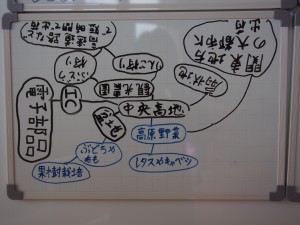 高速道路など
で短時間で出荷
りんご狩り
ぶどう狩り
観光農園
IC
電子部品
中央高地
関東地方
の大都市に
出荷
高原野菜
レタスやキャベツ
ぶどうや
もも
果樹栽培